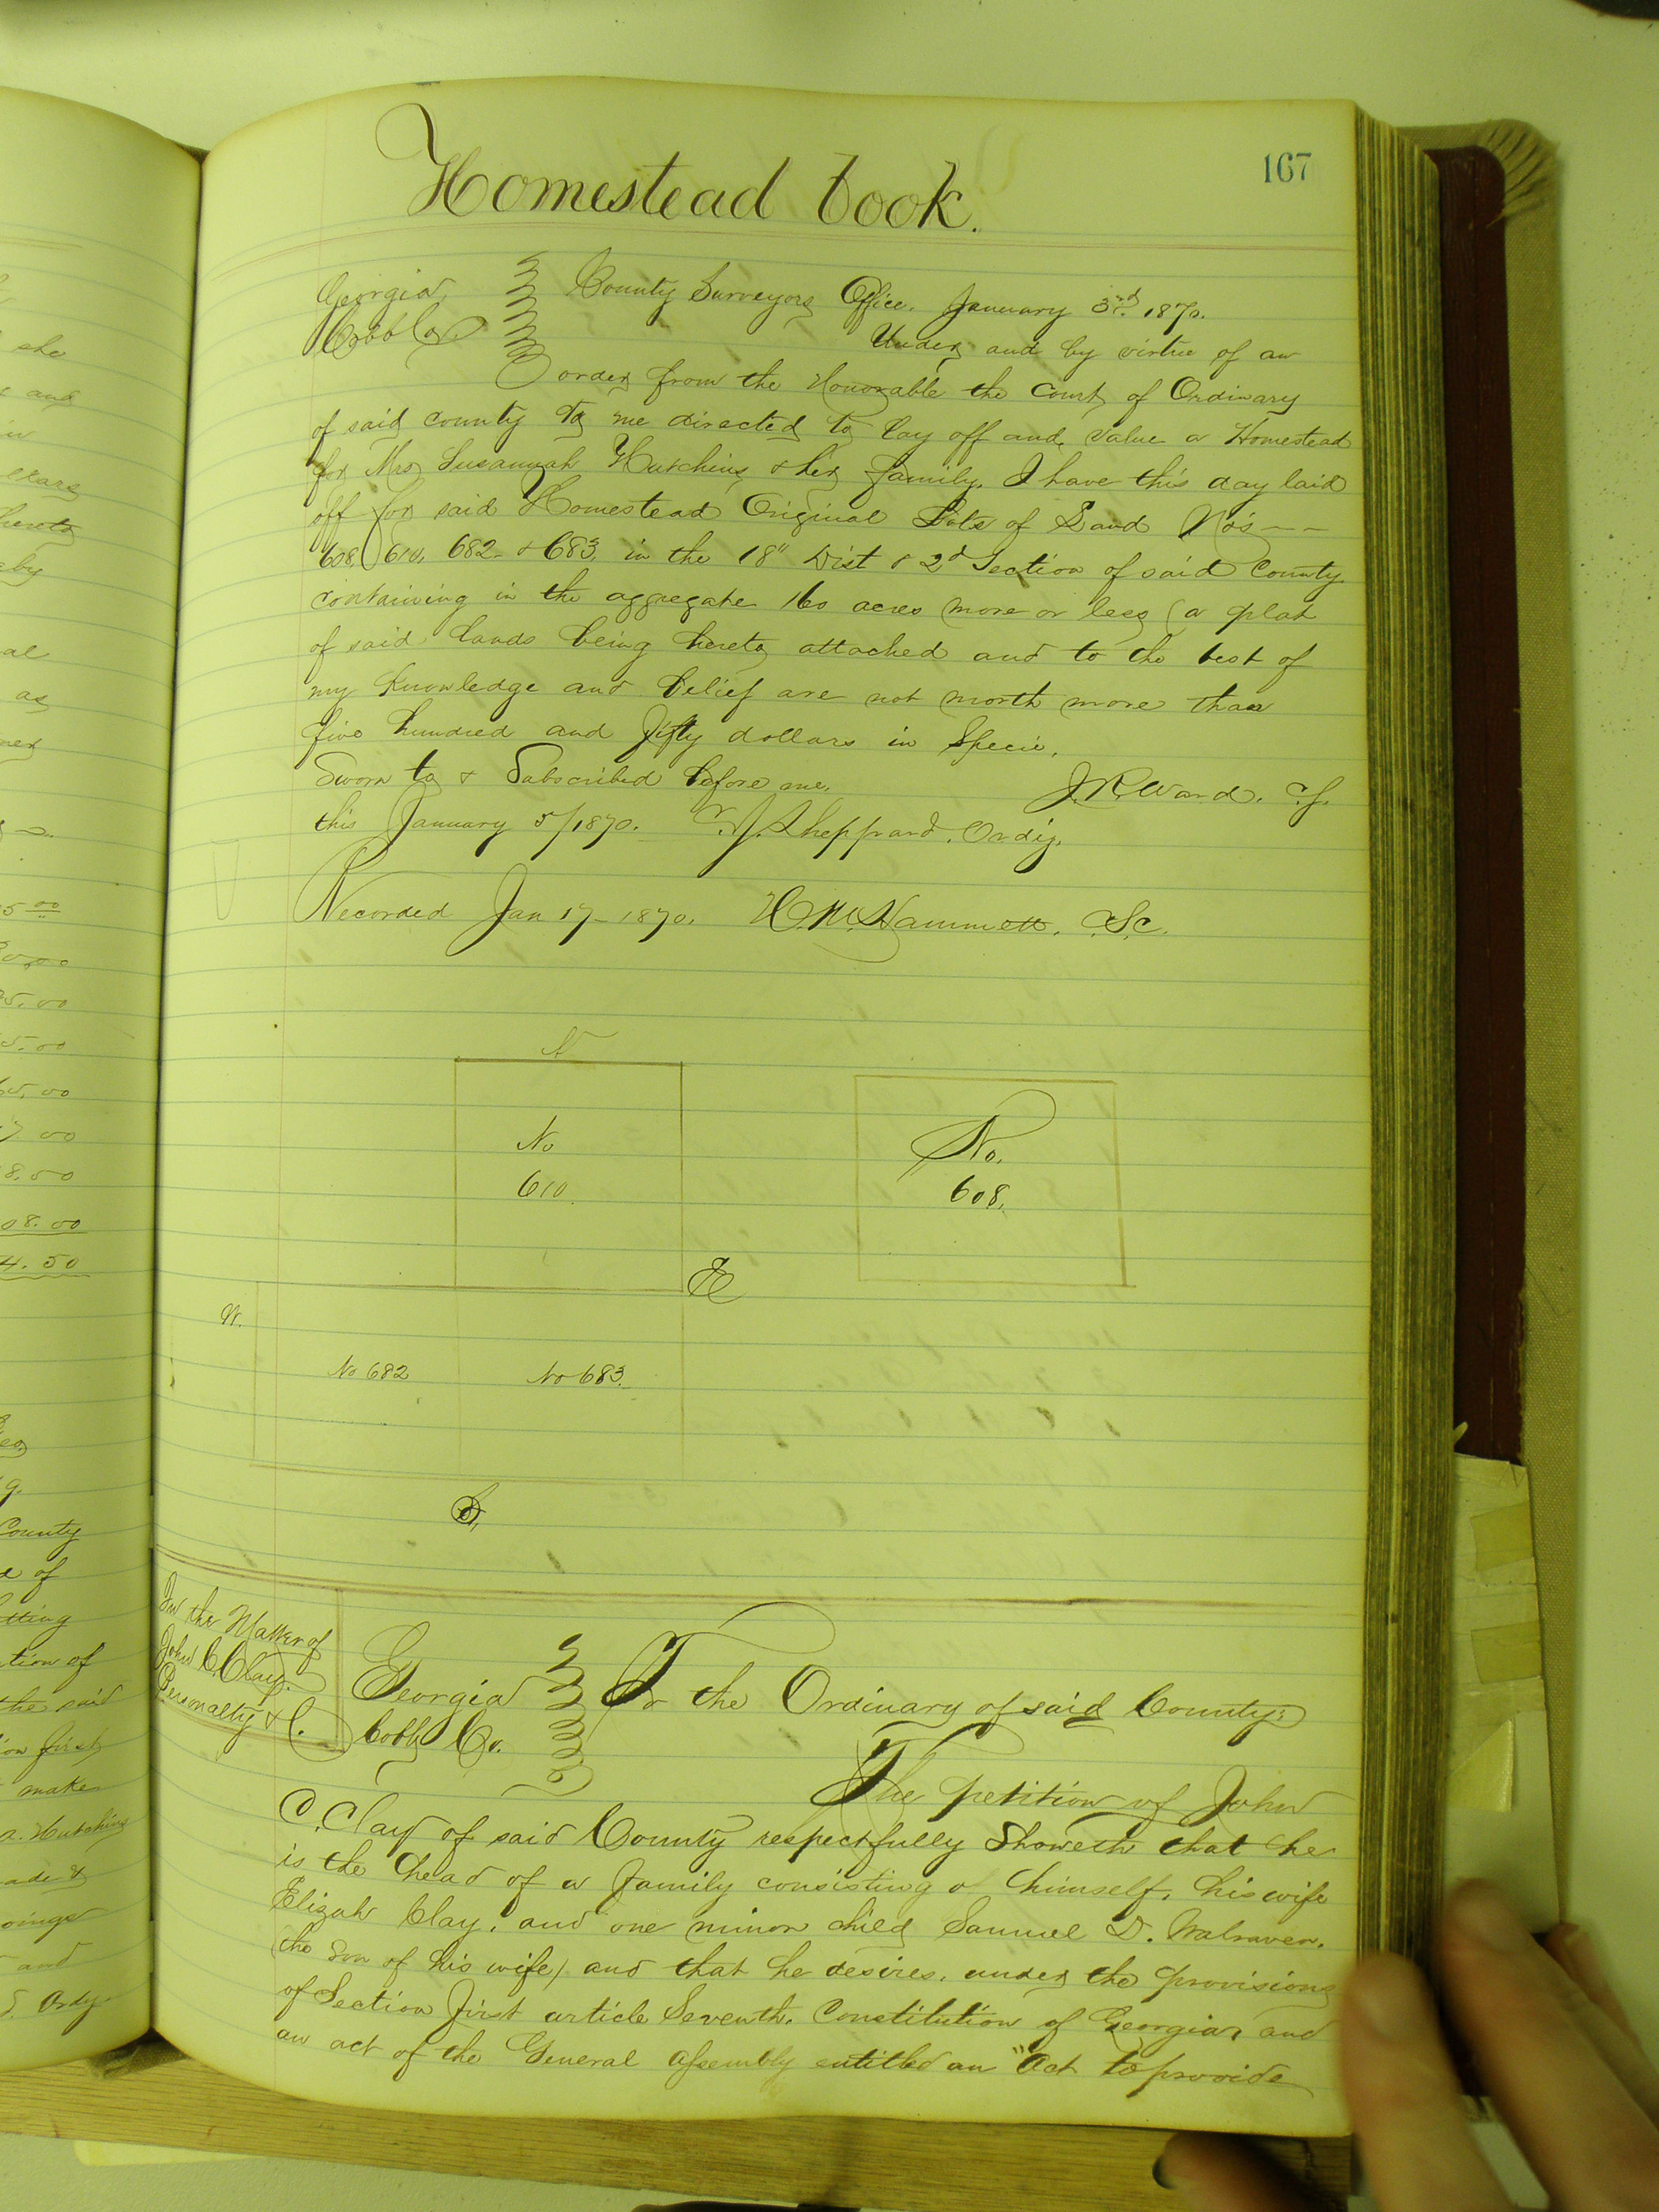 167
Homestead book.
Georgia County Surveyors Office. January 3rd 1870.
Cobb Co. Under and by virtue of an
order from the Honorable the Court of Ordinary
of said county to me directed to lay off and value a Homestead
for Mrs Susannah Hutchins & her family. I have this day laid
off for said Homestead Original Lots of Land No's
608. 610. 682 & 683. in the 18" Dist & 2d Section of said County
containing in the aggregate 160 acres more or less (a plat
of said lands being hereto attached and to the best of
my knowledge and belief are not worth more than
five hundred and fifty dollars in Specie.
Sworn to & Subscribed before me. J.R. Ward. C.S.
this January 5/1870. Sheppard. Ordy.
Recorded Jan 17-1870. H.M. Hammett. C.S.C.
N
No
610.
No.
608.
E
W.
No 682 No 683.
S,
In the Matter of
John C. Clay.
Personalty &C.
Georgia To the Ordinary of said County:
Cobb Co.
The petition of John
C. Clay of said County respectfully Showeth that he
is the head of a family consisting of himself, his wife
Elizah Clay, and one minor child Samuel D. Walraven.
(the son of his wife) and that he desires, under the provisions
of Section first article Seventh. Constitution of Georgia, and
an act of the General Assembly entitled an "Act to provide
she
and
in
hereto
by
al
as
5 00
5.00
5.00
65.00
7 00
8.50
08.00
4.50
9.
County
of
tting
tion of
the said
first
make
a. Hutchins
ade &
and
Ordy.